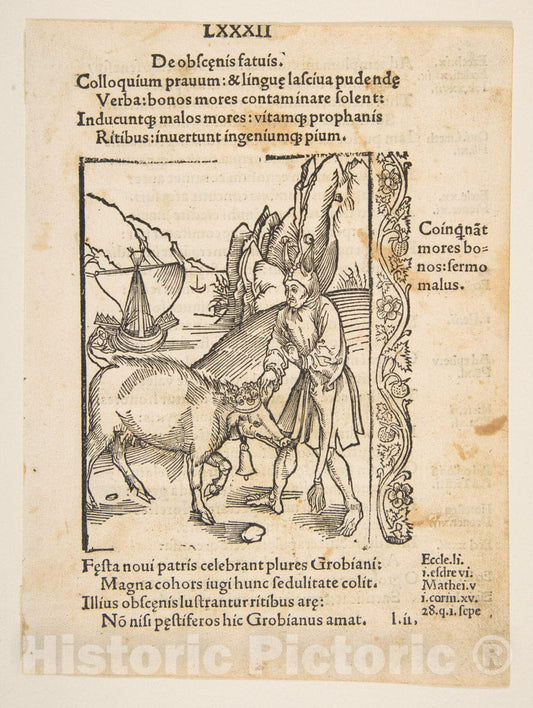 LXXXII
De obscęnis fatuis.
Colloquium prauum: & linguę lasciua pudendę
Verba: bonos mores contaminare solent:
Inducuntqȝ malos mores: vitamqȝ prophanis
Ritibus: inuertunt ingeniumqȝ pium.
Coinq̃nãt
mores bo-
nos: sermo
malus.
Fęsta noui patris celebrant plures Grobiani:
Magna cohors iugi hunc sedulitate colit.
Illius obscęnis lustrantur ritibus arę:
Nõ nisi pęstiferos hic Grobianus amat.
l.ii.
Eccle.li.
i.esdre vi.
Mathei.v
i.corin.xv.
28.q.i.sepe
Historic Pictoric ®